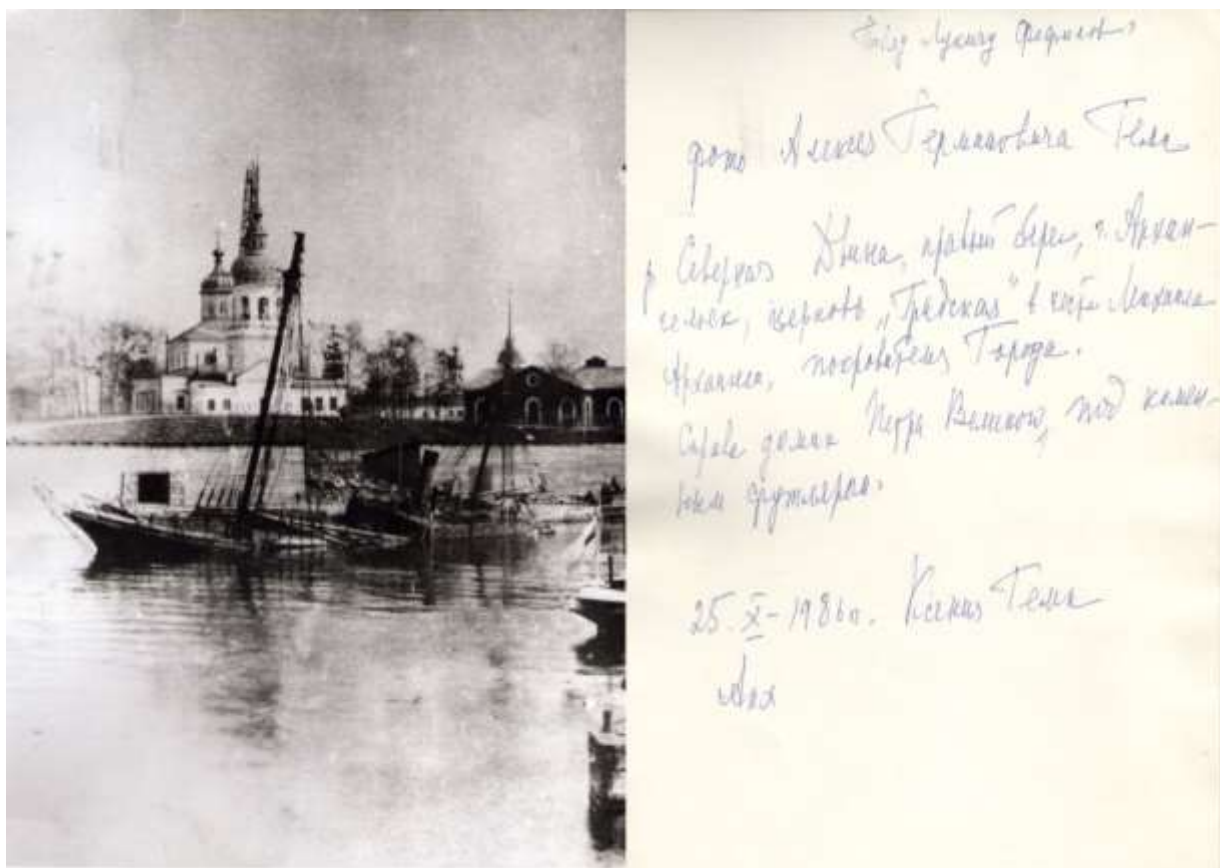 фото Алексея Германовича Гемп
р Северная Двина, правый берег, г. Архан-
гельск, церковь „Градская" в честь Михаила
Архангела, покровителя Города.
Справа домик Петра Великого, под камен-
ным футляром.
25.X-1986г. Ксения Гемп
Арх